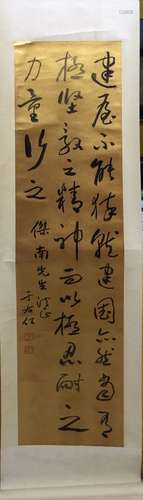 建屋不能猝就建国亦然当有
极坚毅之精神而以极忍耐之
力量行之
傑南先生法正
于右任